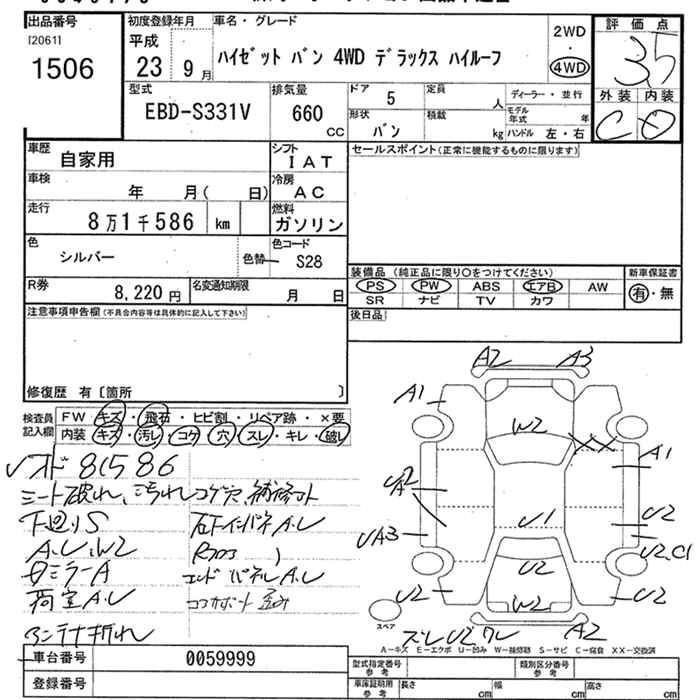 出品番号 初度登録年月 車名・グレード 2WD ・ 4WD 評価点
[2061] 平成 ハイゼット バン 4WD デラックス ハイルーフ 3.5
1506 23年 9月 外装 内装
型式 排気量 ドア 5 定員 人 ディーラー・並行 C D
EBD-S331V 660 CC 形状 バン 積載 kg モデル年式 年 ハンドル 左・右
車歴 自家用 シフト IAT セールスポイント(正常に機能するものに限ります)
車検 年 月( 日) 冷房 AC
走行 8万1千586 km 燃料 ガソリン
色 シルバー 色替 色コード S28
装備品 (純正品に限り○をつけてください) 新車保証書
R券 8,220円 名変通知期限 月 日 PS PW ABS エアB AW 有・無
SR ナビ TV カワ
注意事項申告欄(不具合内容等は具体的に記入して下さい) 後日品
修復歴 有〔箇所 〕
検査員記入欄 FW キズ・飛石・ヒビ割・リペア跡・×要
内装 キズ・汚レ・コゲ・穴・スレ・キレ・破レ
A2 A3
A1 W2 XX A1
UA2 U1 U2
UA3 U2 U2.C1
U2 W2 U2
A2
メーO 81586
シート破れ、汚れコゲ穴、補修跡
下廻りS
A.U.W2
左ミラーA
荷室A.U エンドパネルA.U
アンテナ折れ コアサポート歪み
スペア
A-キズ E-エクボ U-凹み W-補修跡 S-サビ C-腐食 XX-交換済
車台番号 0059999 型式指定番号 参考 類別区分番号 参考
登録番号 車庫証明用 参考 長さ cm 幅 cm 高さ cm